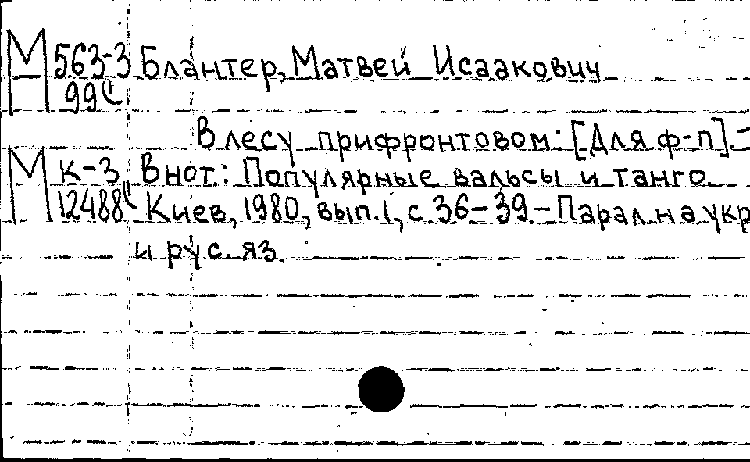 М 563-3 Блантер, Матвей Исаакович
99
В лесу прифронтовом: [Для ф-п] –
М К-3 В нот.: Популярные вальсы и танго.
12488 Киев, 1980, вып. 1, с 36–39 – Парал. на укр
и рус. яз.